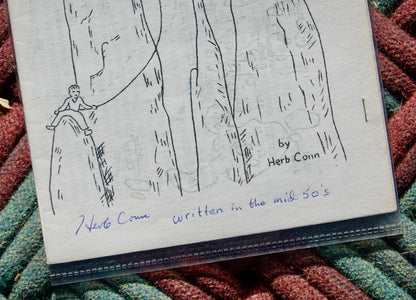 by
Herb Conn
Herb Conn written in the mid 50's